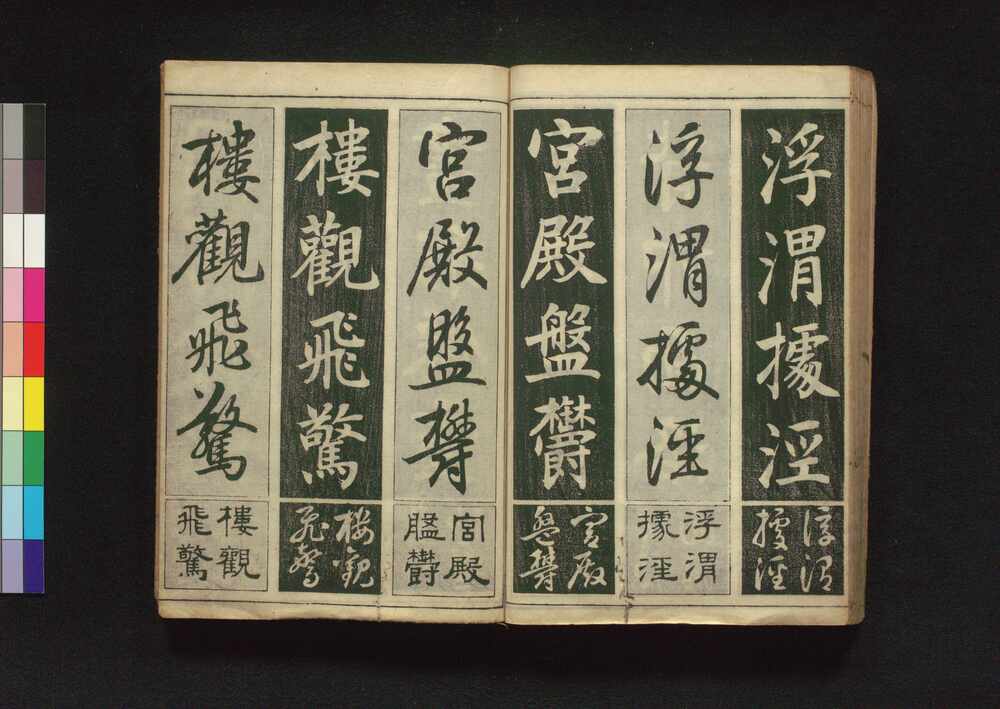 浮渭據涇
浮渭
據涇
浮渭據涇
浮渭
據涇
宮殿盤欝
宮殿
盤欝
宮殿盤欝
宮殿
盤欝
樓觀飛驚
樓觀
飛驚
樓觀飛驚
樓觀
飛驚